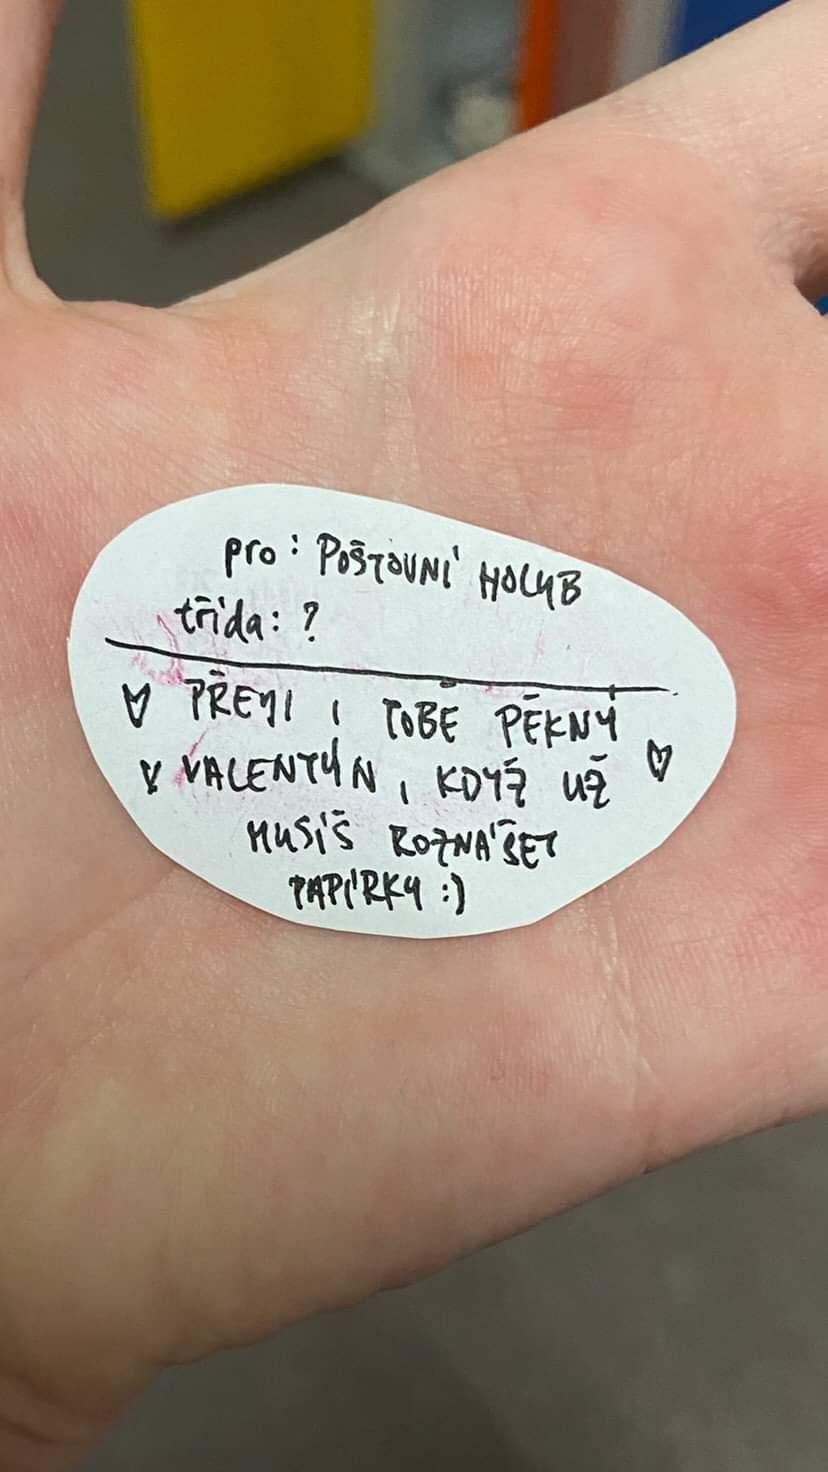 pro: POŠTOVNÍ HOLUB
třída: ?
♡ PŘEJI I TOBĚ PĚKNÝ
♡ VALENTÝN, KDYŽ UŽ ♡
MUSÍŠ ROZNÁŠET
PAPÍRKY :)